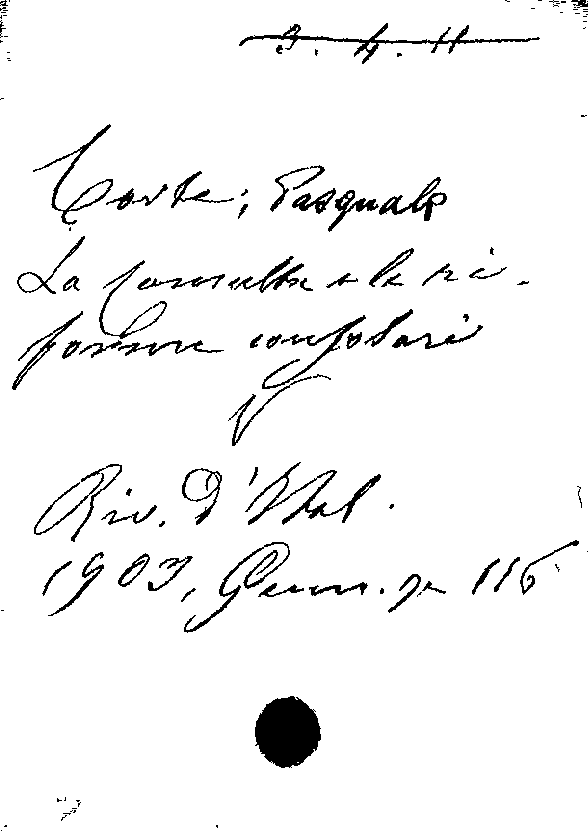 3. 4. 11
Corte, Pasquale
La Consulta e le ri-
forme consolari
Riv. d'Ital.
1903, Genn. p 116